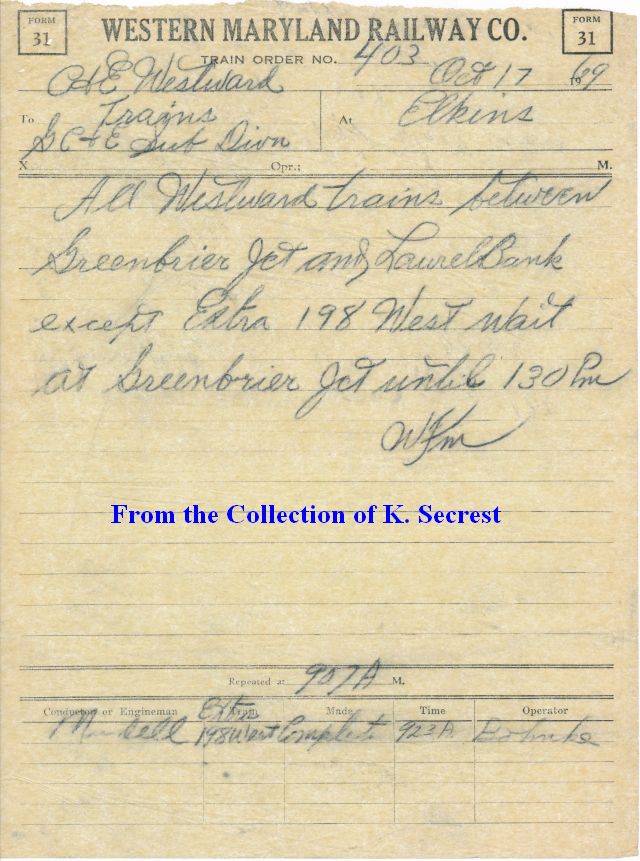 FORM 31
WESTERN MARYLAND RAILWAY CO.
FORM 31
TRAIN ORDER NO. 403
Oct 17 1969
To C+E Westward
Trains
G C + E Sub Divn
At Elkins
X Opr.; M.
All Westward trains between
Greenbrier Jct and Laurel Bank
except Extra 198 West wait
at Greenbrier Jct until 130 Pm
WFm
From the Collection of K. Secrest
Repeated at 907A M.
Conductor or Engineman Train Made Time Operator
Extra
198 West Complete 923A. Bohnke